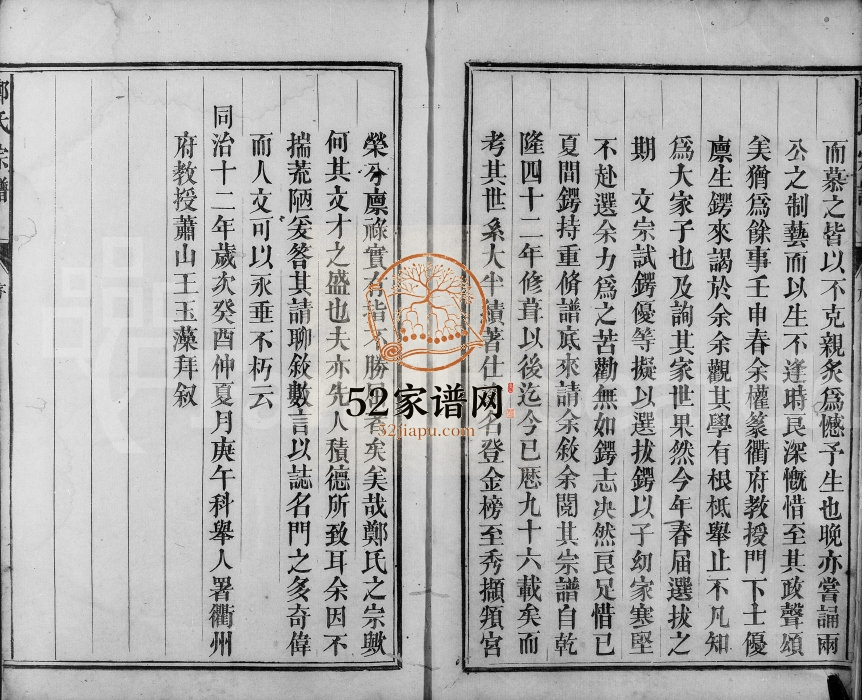 而慕之皆以不克親炙爲憾予生也晚亦嘗誦兩
公之制藝而以生不逢時良深慨惜至其政聲頌
矣猶爲餘事壬申春余權篆衢府教授門下士優
廩生鍔來謁於余余觀其學有根柢舉止不凡知
爲大家子也及詢其家世果然今年春届選拔之
期　文宗試鍔優等擬以選拔鍔以子幼家寒堅
不赴選余力爲之苦勸無如鍔志决然良足惜已
夏間鍔持重脩譜底來請余敘余閱其宗譜自乾
隆四十二年修葺以後迄今已歷九十六載矣而
考其世系大半績著仕名登金榜至秀擷頖宮
榮分廪祿實有指不勝屈者矣美哉鄭氏之宗歟
何其文才之盛也夫亦先人積德所致耳余因不
揣荒陋爰答其請聊敘數言以誌名門之多奇偉
而人文可以永垂不朽云
同治十二年歲次癸酉仲夏月庚午科舉人署衢州
府教授蕭山王玉藻拜叙
鄭氏宗譜
序
52家谱网
52jiapu.com